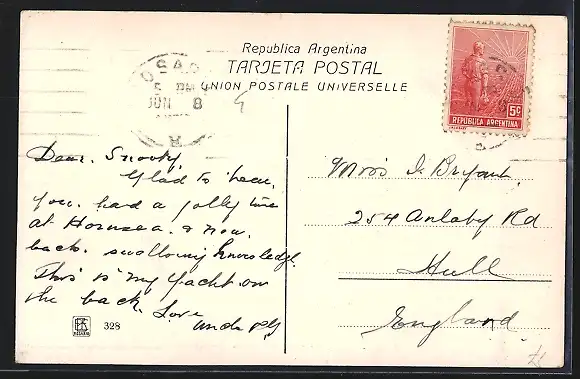 Republica Argentina
TARJETA POSTAL
UNION POSTALE UNIVERSELLE
ROSARIO
5 PM
JUN 8
5c
REPUBLICA ARGENTINA
Dear. Snooky
Glad to hear,
you. had a jolly time
at Hornsea. & now.
back. swallowing knowledge.
This is my yacht on
the back. Love
328
Miss I. Bryant.
254 Anlaby Rd
Hull
England.